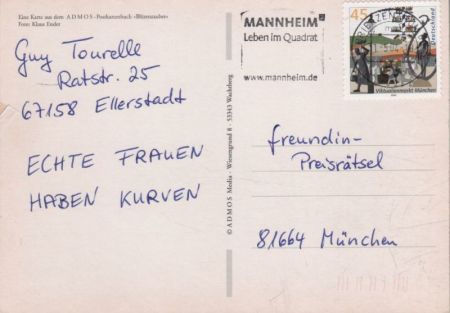 Eine Karte aus dem A D M O S - Postkartenbuch »Blütenzauber«
Foto: Klaus Ender
Guy Tourelle
Ratstr. 25
67158 Ellerstadt
ECHTE FRAUEN
HABEN KURVEN
© A D M O S Media · Wiesengrund 8 · 53343 Wachtberg
MANNHEIM
Leben im Quadrat
www.mannheim.de
45
Deutschland
Viktualienmarkt München
freundin-
Preisrätsel
81664 München